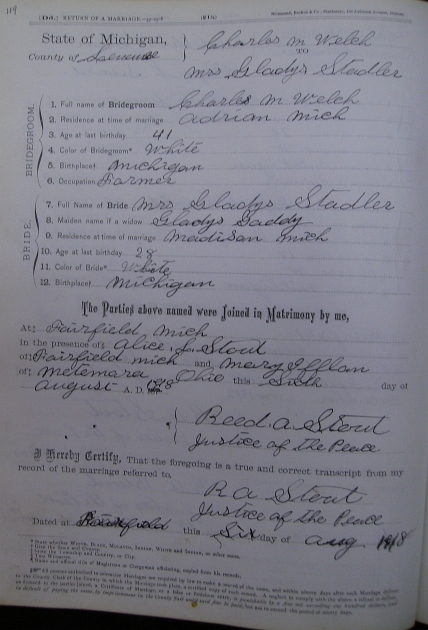 119
(136.) RETURN OF A MARRIAGE.
State of Michigan,
County of Lenawee
Charles M Welch
TO
Mrs Gladys Stadler
BRIDEGROOM.
1. Full name of Bridegroom Charles M Welch
2. Residence at time of marriage Adrian Mich
3. Age at last birthday 41
4. Color of Bridegroom* White
5. Birthplace† Michigan
6. Occupation Farmer
BRIDE.
7. Full Name of Bride Mrs Gladys Stadler
8. Maiden name if a widow Gladys Gaddy
9. Residence at time of marriage Madison Mich
10. Age at last birthday 28
11. Color of Bride* White
12. Birthplace† Michigan
The Parties above named were Joined in Matrimony by me,
At‡ Fairfield Mich
In the presence of§ Alice L. Stout
of‡ Fairfield Mich and Mary Iffland
of‡ Metemara Ohio this Sixth day of
August A. D. 1918
Reed. A Stout
Justice of the Peace
I Hereby Certify, That the foregoing is a true and correct transcript from my
record of the marriage referred to.
R A Stout
Justice of the Peace
Dated at Fairfield this Six day of Aug 1918